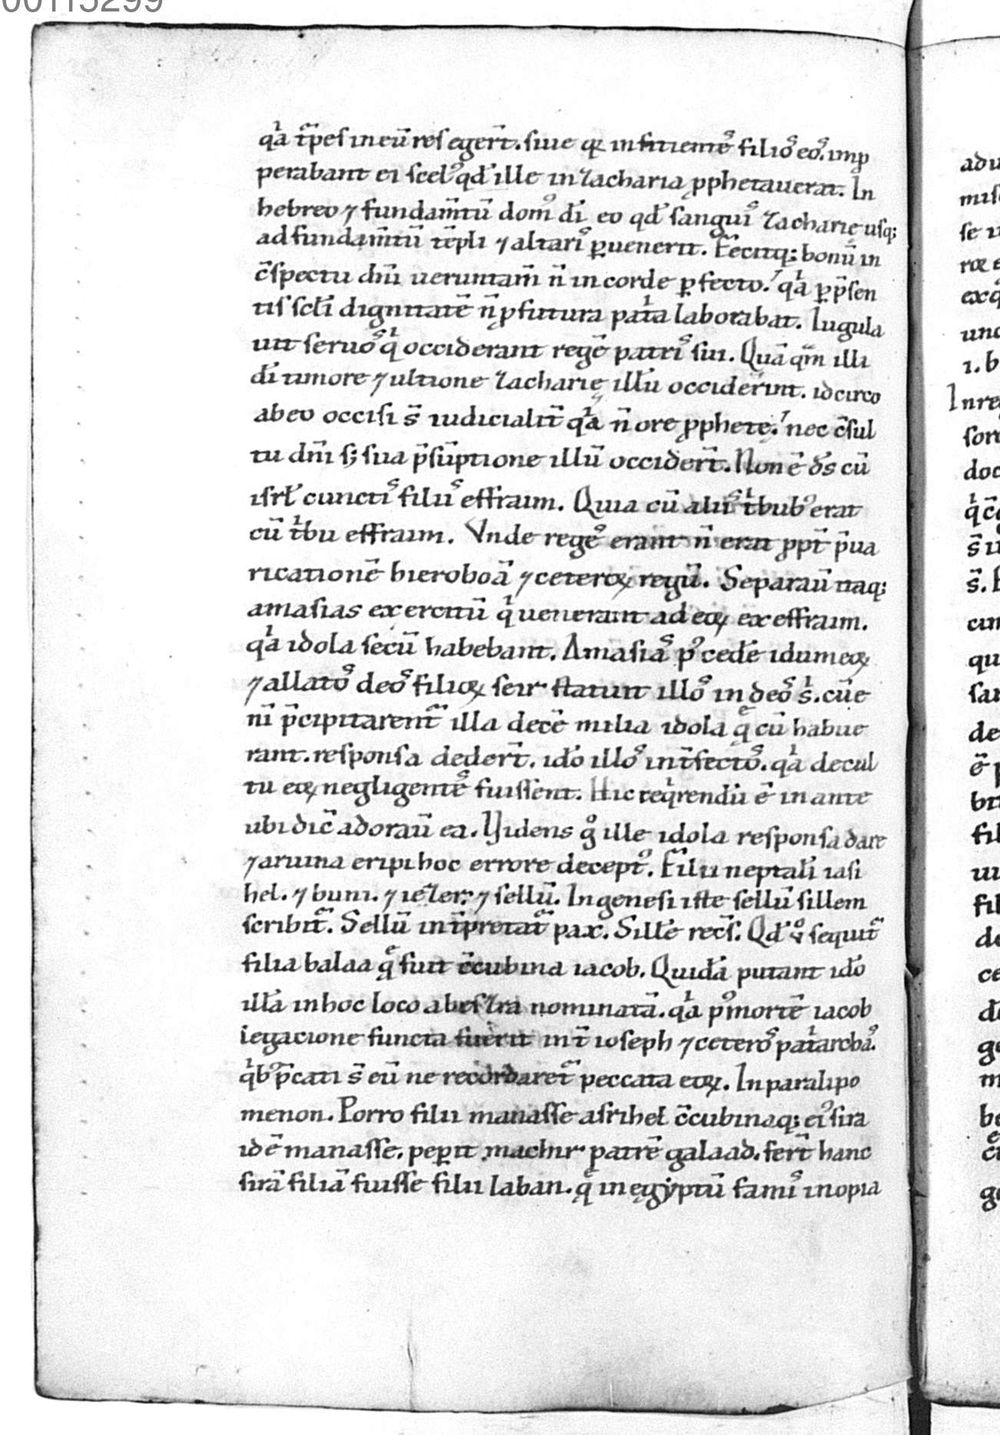 00115299
qͥa t̄pes in eū res egeȓt. siue qꝛ insitiente᷒ filio᷒ eoꝰ. imp
perabant ei scelꝰ qd̄ ille in zacharia ꝓphetauerat. In
hebreo ⁊ fundam̄tū domꝰ dī eo qd̄ sangui᷒ zacharię usq;
ad fundam̄tū tēpli ⁊ altari᷒ ꝑuenerit. Fecitq; bonū in
c̄spectu dnī ueruntam̄ n̄ in corde ꝑfecto. qͥa ꝑ p̄sen
tis sc̄li dignitatē n̄ ꝓ futura patͥa laborabat. Iugula
uit seruo᷒ qͥ occiderant regē patri᷒ sui. Quā qm̄ illi
dī timore ⁊ ultione zacharię illū occiderint. idcirco
ab eo occisi s̄ iudicialit̄ qͥa n̄ ore ꝓphete. nec c̄sul
tu dnī s; sua p̄sūptione illū occideȓt. Non ē ds̄ cū
isrl̄ cuncti᷒ filii᷒ effraim. Quia cū alii᷒ tͥbubꝰ erat
cū tͥbu effraim. Vnde rege᷒ erant n̄ erat ꝓpt̄ p̄ua
ricationē hieroboā ⁊ ceteroꝝ regū. Separau̅ itaq;
amasias exercitū qͥ uenerant ad eoꝝ ex effraim.
qͥa idola secū habebant. Amasia᷒ pꝰ cedē idumeoꝝ
⁊ allato᷒ deo᷒ filioꝝ seir statuit illo᷒ in deo᷒ sͥ. cūe
ni p̄cipitarent᷑ illa decē milia idola q̄ cū habue
rant. responsa dedeȓt. ido̅ illo᷒ int̄fecto᷒. qͥa de cul
tu eoꝝ negligente᷒ fuissent. Hic reqͥrendū ē in ante
ubi dic̄ adorau̅ ea. Videns gͦ ille idola responsa dare
⁊ aruina eripi hoc errore deceptꝰ. Filii neptali iasi
hel. ⁊ buni. ⁊ iezer. ⁊ sellū. In genesi iste sellū sillem
scribit᷑. Sellū int̄pretat᷑ pax. Sillē rec̄s. Qd̄ ů sequit᷑
filia balaa q̄ fuit c̄cubina iacob. Quidā putant ido̅
illā in hoc loco ab eszra nominatā. qͥa pꝰ mortē iacob
legacione functa fuerit int̄ ioseph ⁊ cetero᷒ patͥarchaꝰ.
qͥbꝰ p̄cati s̄ eū ne recordaret᷑ peccata eoꝝ. In paralipo
menon. Porro filii manasse asrihel c̄cubinaq; eiꝰ sira
id ē manasse. peꝑit machir patrē galaad. fert᷑ hanc
sirā filiā fuisse filii laban. q̄ in egyptū fami᷒ inopia